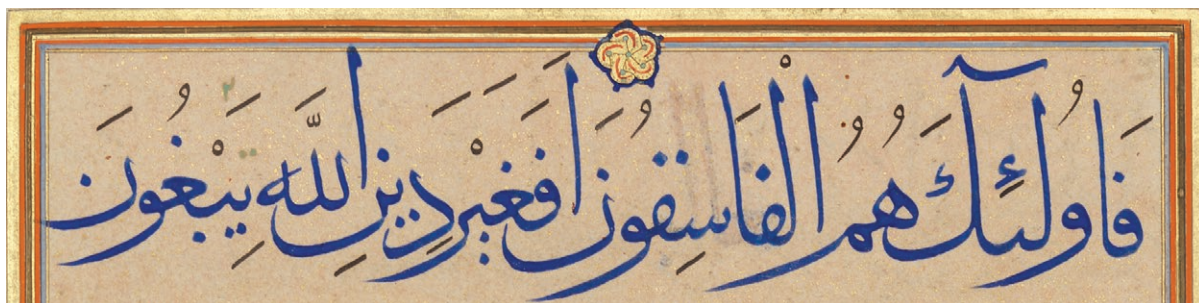 فَاُولٰئِكَ هُمُ الْفَاسِقُونَ اَفَغَيْرَ دِينِ اللَّهِ يَبْغُونَ